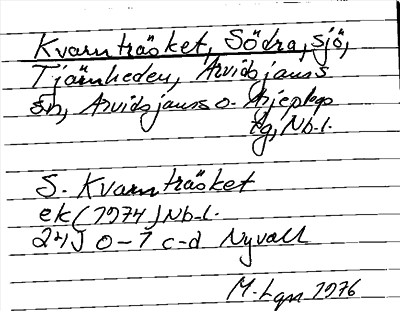 Kvarnträsket, Södra, sjö,
Tjärnheden, Arvidsjaurs
sn, Arvidsjaurs o. Arjeplogs
tg, Nb.l.
S. Kvarnträsket
ek (1974) Nb-l.
24J 0-1 c-d Nyvall
M. Lgn 1976